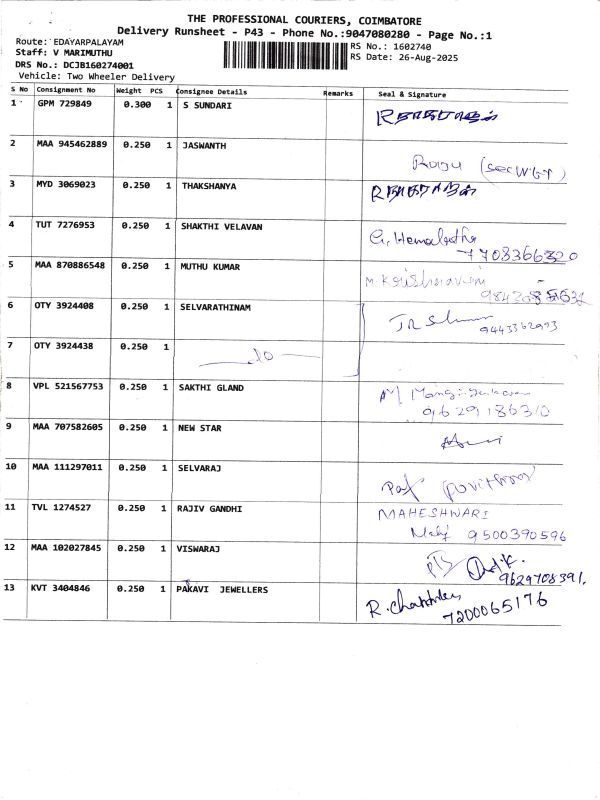 THE PROFESSIONAL COURIERS, COIMBATORE
Delivery Runsheet - P43 - Phone No.:9047080280 - Page No.:1
Route: EDAYARPALAYAM
Staff: V MARIMUTHU
DRS No.: DCJB160274001
Vehicle: Two Wheeler Delivery
RS No.: 1602740
RS Date: 26-Aug-2025
S No Consignment No Weight PCS Consignee Details Remarks Seal & Signature
1 GPM 729849 0.300 1 S SUNDARI
2 MAA 945462889 0.250 1 JASWANTH
3 MYD 3069023 0.250 1 THAKSHANYA
4 TUT 7276953 0.250 1 SHAKTHI VELAVAN G. Hemalatha
7708366320
5 MAA 870886548 0.250 1 MUTHU KUMAR
6 OTY 3924408 0.250 1 SELVARATHINAM 9443362993
7 OTY 3924438 0.250 1 do
8 VPL 521567753 0.250 1 SAKTHI GLAND
9629186310
9 MAA 707582605 0.250 1 NEW STAR
10 MAA 111297011 0.250 1 SELVARAJ
11 TVL 1274527 0.250 1 RAJIV GANDHI MAHESHWARI
9500390596
12 MAA 102027845 0.250 1 VISWARAJ
9629708391.
13 KVT 3404846 0.250 1 PAKAVI JEWELLERS
7200065176